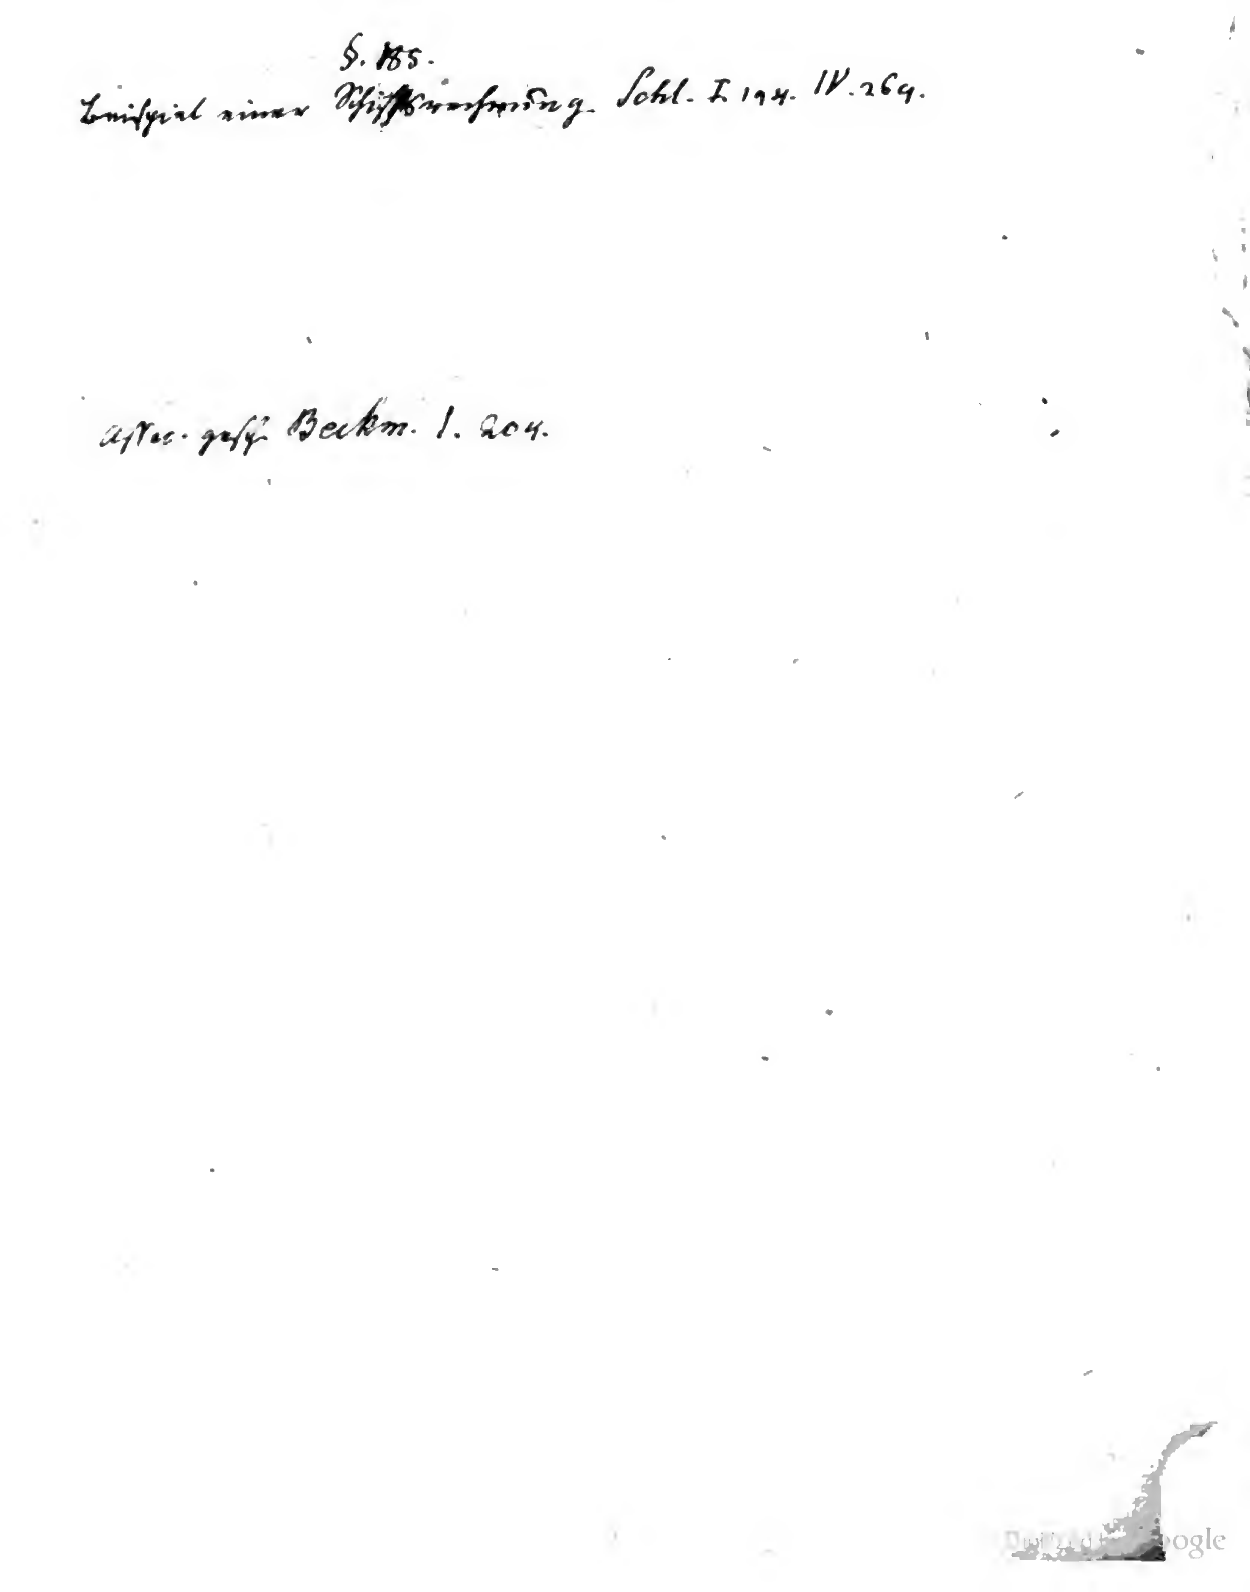 §. 185.
Beispiel einer Schiffsrechnung. Schl. I. 194. IV. 264.
Assec. gesch. Beckm. I. 204.